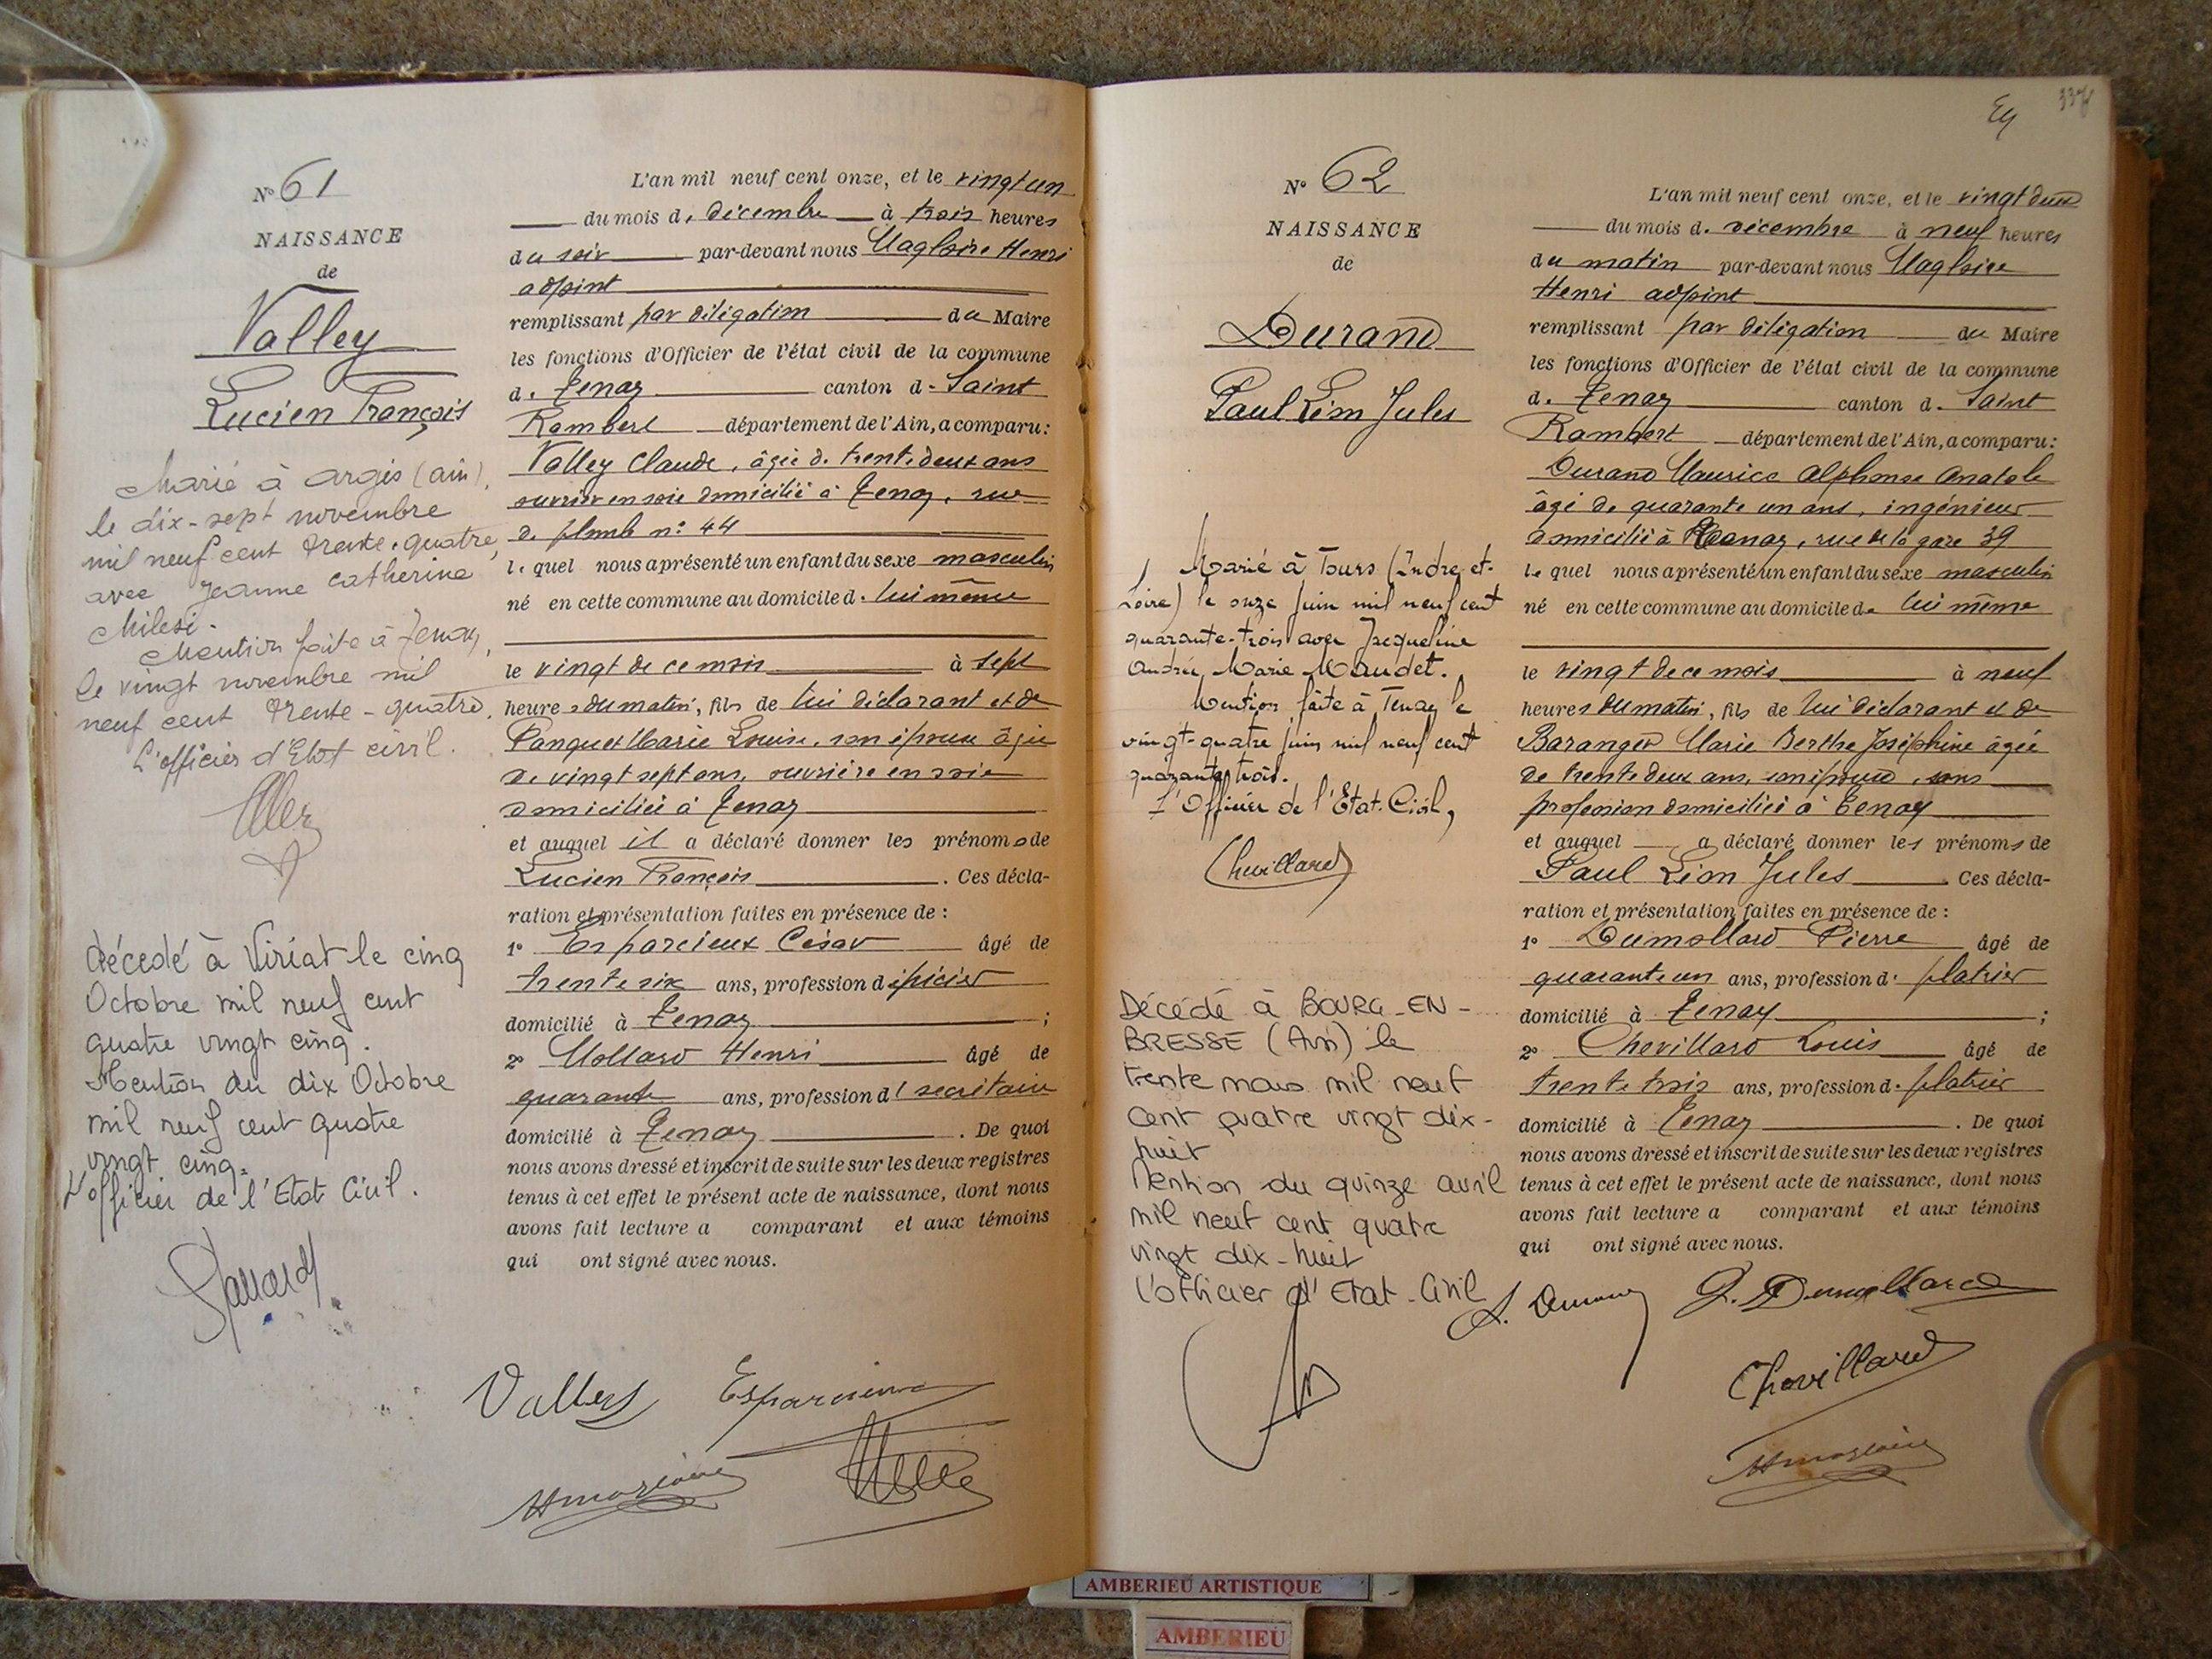 N° 61
NAISSANCE
de
Valley
Lucien François
Marié à Argis (Ain),
le dix-sept novembre
mil neuf cent trente-quatre,
avec Jeanne Catherine
Milesi.
Mention faite à Tenay,
le vingt novembre mil
neuf cent trente-quatre.
L'officier d'Etat civil.
décédé à Viriat le cinq
Octobre mil neuf cent
quatre vingt cinq.
Mention du dix Octobre
mil neuf cent quatre
vingt cinq.
L'officier de l'Etat Civil.
L'an mil neuf cent onze, et le vingt un
du mois de décembre à trois heures
du soir par-devant nous Magloire Henri
adjoint
remplissant par délégation du Maire
les fonctions d'Officier de l'état civil de la commune
de Tenay canton de Saint
Rambert département de l'Ain, a comparu:
Valley Claude, âgé de trente deux ans
ouvrier en soie domicilié à Tenay, rue
de plomb n° 44
lequel nous a présenté un enfant du sexe masculin
né en cette commune au domicile de lui même
le vingt de ce mois à sept
heures du matin, fils de lui déclarant et de
Panquet Marie Louise, son épouse âgée
de vingt sept ans, ouvrière en soie
domiciliée à Tenay
et auquel il a déclaré donner les prénoms de
Lucien François. Ces décla-
ration et présentation faites en présence de :
1° Esparcieux César âgé de
trente six ans, profession d'épicier
domicilié à Tenay ;
2° Mollard Henri âgé de
quarante ans, profession d secrétaire
domicilié à Tenay. De quoi
nous avons dressé et inscrit de suite sur les deux registres
tenus à cet effet le présent acte de naissance, dont nous
avons fait lecture a comparant et aux témoins
qui ont signé avec nous.
Valley Esparcieux
HMagloire
337
N° 62
NAISSANCE
de
Durand
Paul Léon Jules
Marié à Tours (Indre-et-
Loire) le onze juin mil neuf cent
quarante-trois avec Jacqueline
Andrée Marie Maudet.
Mention faite à Tenay le
vingt-quatre juin mil neuf cent
quarante trois.
L'Officier de l'Etat-Civil,
Chevillard
Décédé à BOURG-EN-
BRESSE (Ain) le
trente mars mil neuf
cent quatre vingt dix-
huit
Mention du quinze avril
mil neuf cent quatre
vingt dix-huit
L'officier d'Etat-Civil
L'an mil neuf cent onze, et le vingt deux
du mois de décembre à neuf heures
du matin par-devant nous Magloire
Henri adjoint
remplissant par délégation du Maire
les fonctions d'Officier de l'état civil de la commune
de Tenay canton de Saint
Rambert département de l'Ain, a comparu:
Durand Maurice Alphonse Anatole
âgé de quarante un ans, ingénieur
domicilié à Tenay, rue de la gare 39
lequel nous a présenté un enfant du sexe masculin
né en cette commune au domicile de lui même
le vingt de ce mois à neuf
heures du matin, fils de lui déclarant et de
Baranger Marie Berthe Joséphine âgée
de trente deux ans, son épouse, sans
profession domiciliée à Tenay
et auquel a déclaré donner les prénoms de
Paul Léon Jules Ces décla-
ration et présentation faites en présence de :
1° Dumollard Pierre âgé de
quarante un ans, profession de platrier
domicilié à Tenay ;
2° Chevillard Louis âgé de
trente trois ans, profession de platrier
domicilié à Tenay. De quoi
nous avons dressé et inscrit de suite sur les deux registres
tenus à cet effet le présent acte de naissance, dont nous
avons fait lecture a comparant et aux témoins
qui ont signé avec nous.
P. Dumollard
Chevillard
HMagloire
AMBERIEU ARTISTIQUE
AMBERIEU